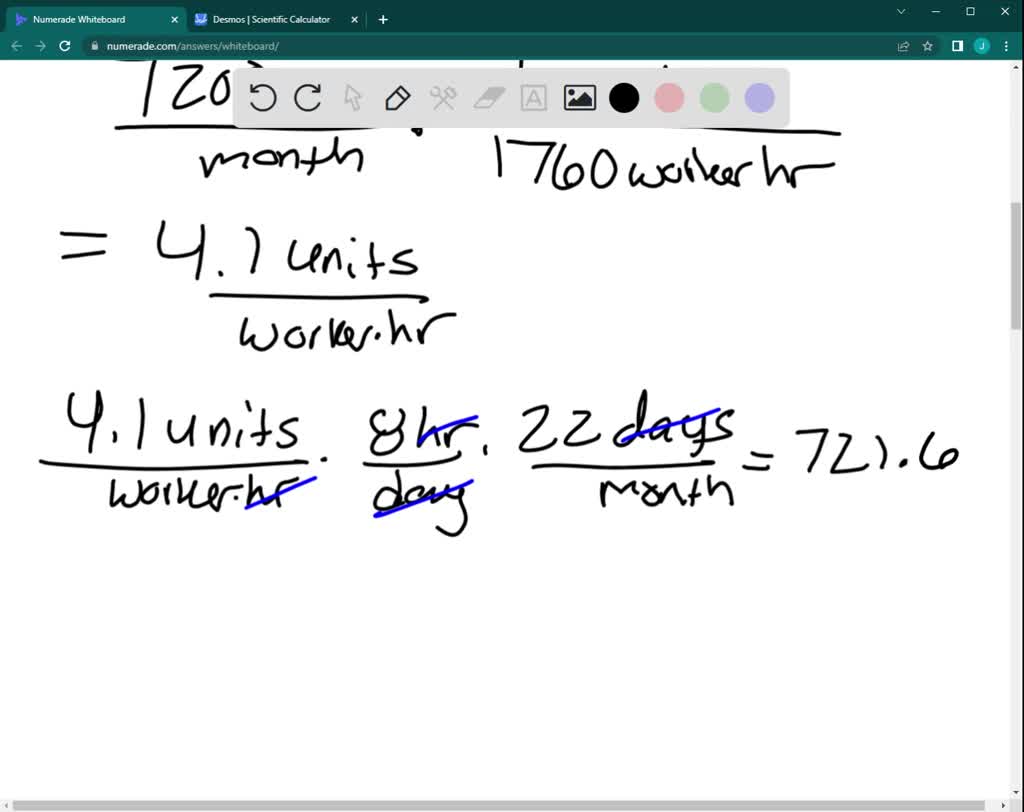 Numerade Whiteboard
Desmos | Scientific Calculator
numerade.com/answers/whiteboard/
J
A
month
1760 worker hr
= 4.1 units
worker.hr
4.1 units . 8 hr . 22 days = 721.6
worker.hr day month